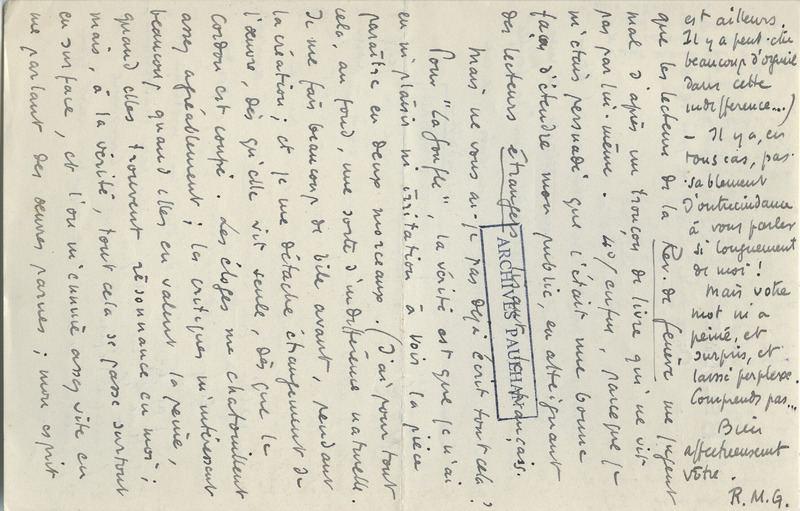 que les lecteurs de la Rev. de Genève me jugent
mal d'après un tronçon de livre qui ne vit
pas par lui-même. 4°/ enfin, parceque je
m'étais persuadé que c'était une bonne
façon d'étendre mon public, en atteignant
des lecteurs étrangers lisant le français.
Mais ne vous ai-je pas déjà écrit tout cela ?
Pour "La Gonfle", la vérité est que je n'ai
eu ni plaisir ni irritation à voir la pièce
paraître en deux morceaux. (J'ai pour tout
cela, au fond, une sorte d'indifférence naturelle.
Je me fais beaucoup de bile avant, pendant
la création ; et je me détache étrangement de
l'œuvre, dès qu'elle vit seule, dès que le
cordon est coupé. Les éloges me chatouillent
assez agréablement ; les critiques m'intéressent
beaucoup quand elles en valent la peine,
quand elles trouvent résonnance en moi ;
mais, à la vérité, tout cela se passe surtout
en surface, et l'on m'ennuie assez vite en
me parlant des œuvres parues ; mon esprit
est ailleurs.
Il y a peut-être
beaucoup d'orgueil
dans cette
indifférence...)
- Il y a, en
tous cas, pas-
sablement
d'outrecuidance
à vous parler
si longuement
de moi !
Mais votre
mot m'a
peiné, et
surpris, et
laissé perplexe.
Comprends pas...
Bien
affectueusement
vôtre.
R.M.G.
ARCHIVES PAULHAN